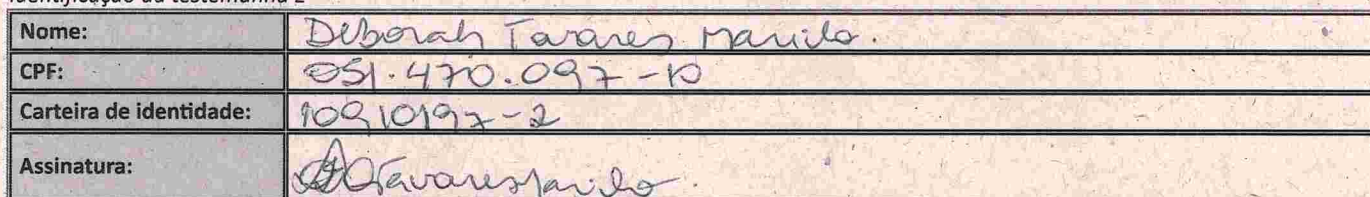 Identificação da testemunha 2
Nome: Deborah Tavares
CPF: 051.470.097-10
Carteira de identidade: 10910197-2
Assinatura: